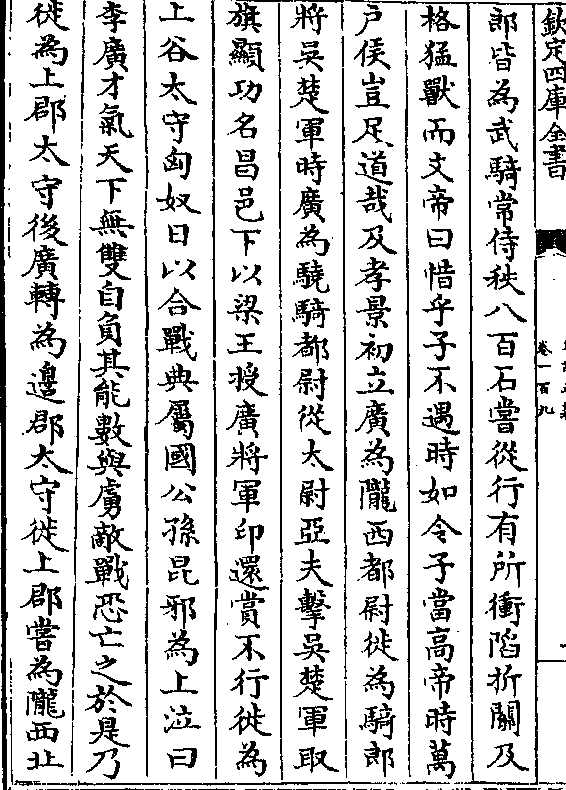 欽定四庫全書
卷一百九
郎皆為武騎常侍秩八百石嘗從行有所衝陷折關及
格猛獸而文帝曰惜乎子不遇時如令子當高帝時萬
户侯豈足道哉及孝景初立廣為隴西都尉徙為騎郎
將吳楚軍時廣為驍騎都尉從太尉亞夫擊吳楚軍取
旗顯功名昌邑下以梁王授廣將軍印還賞不行徙為
上谷太守匈奴日以合戰典屬國公孫昆邪為上泣曰
李廣才氣天下無雙自負其能數與虜敵戰恐亡之於是乃
徙為上郡太守後廣轉為邊郡太守徙上郡嘗為隴西北